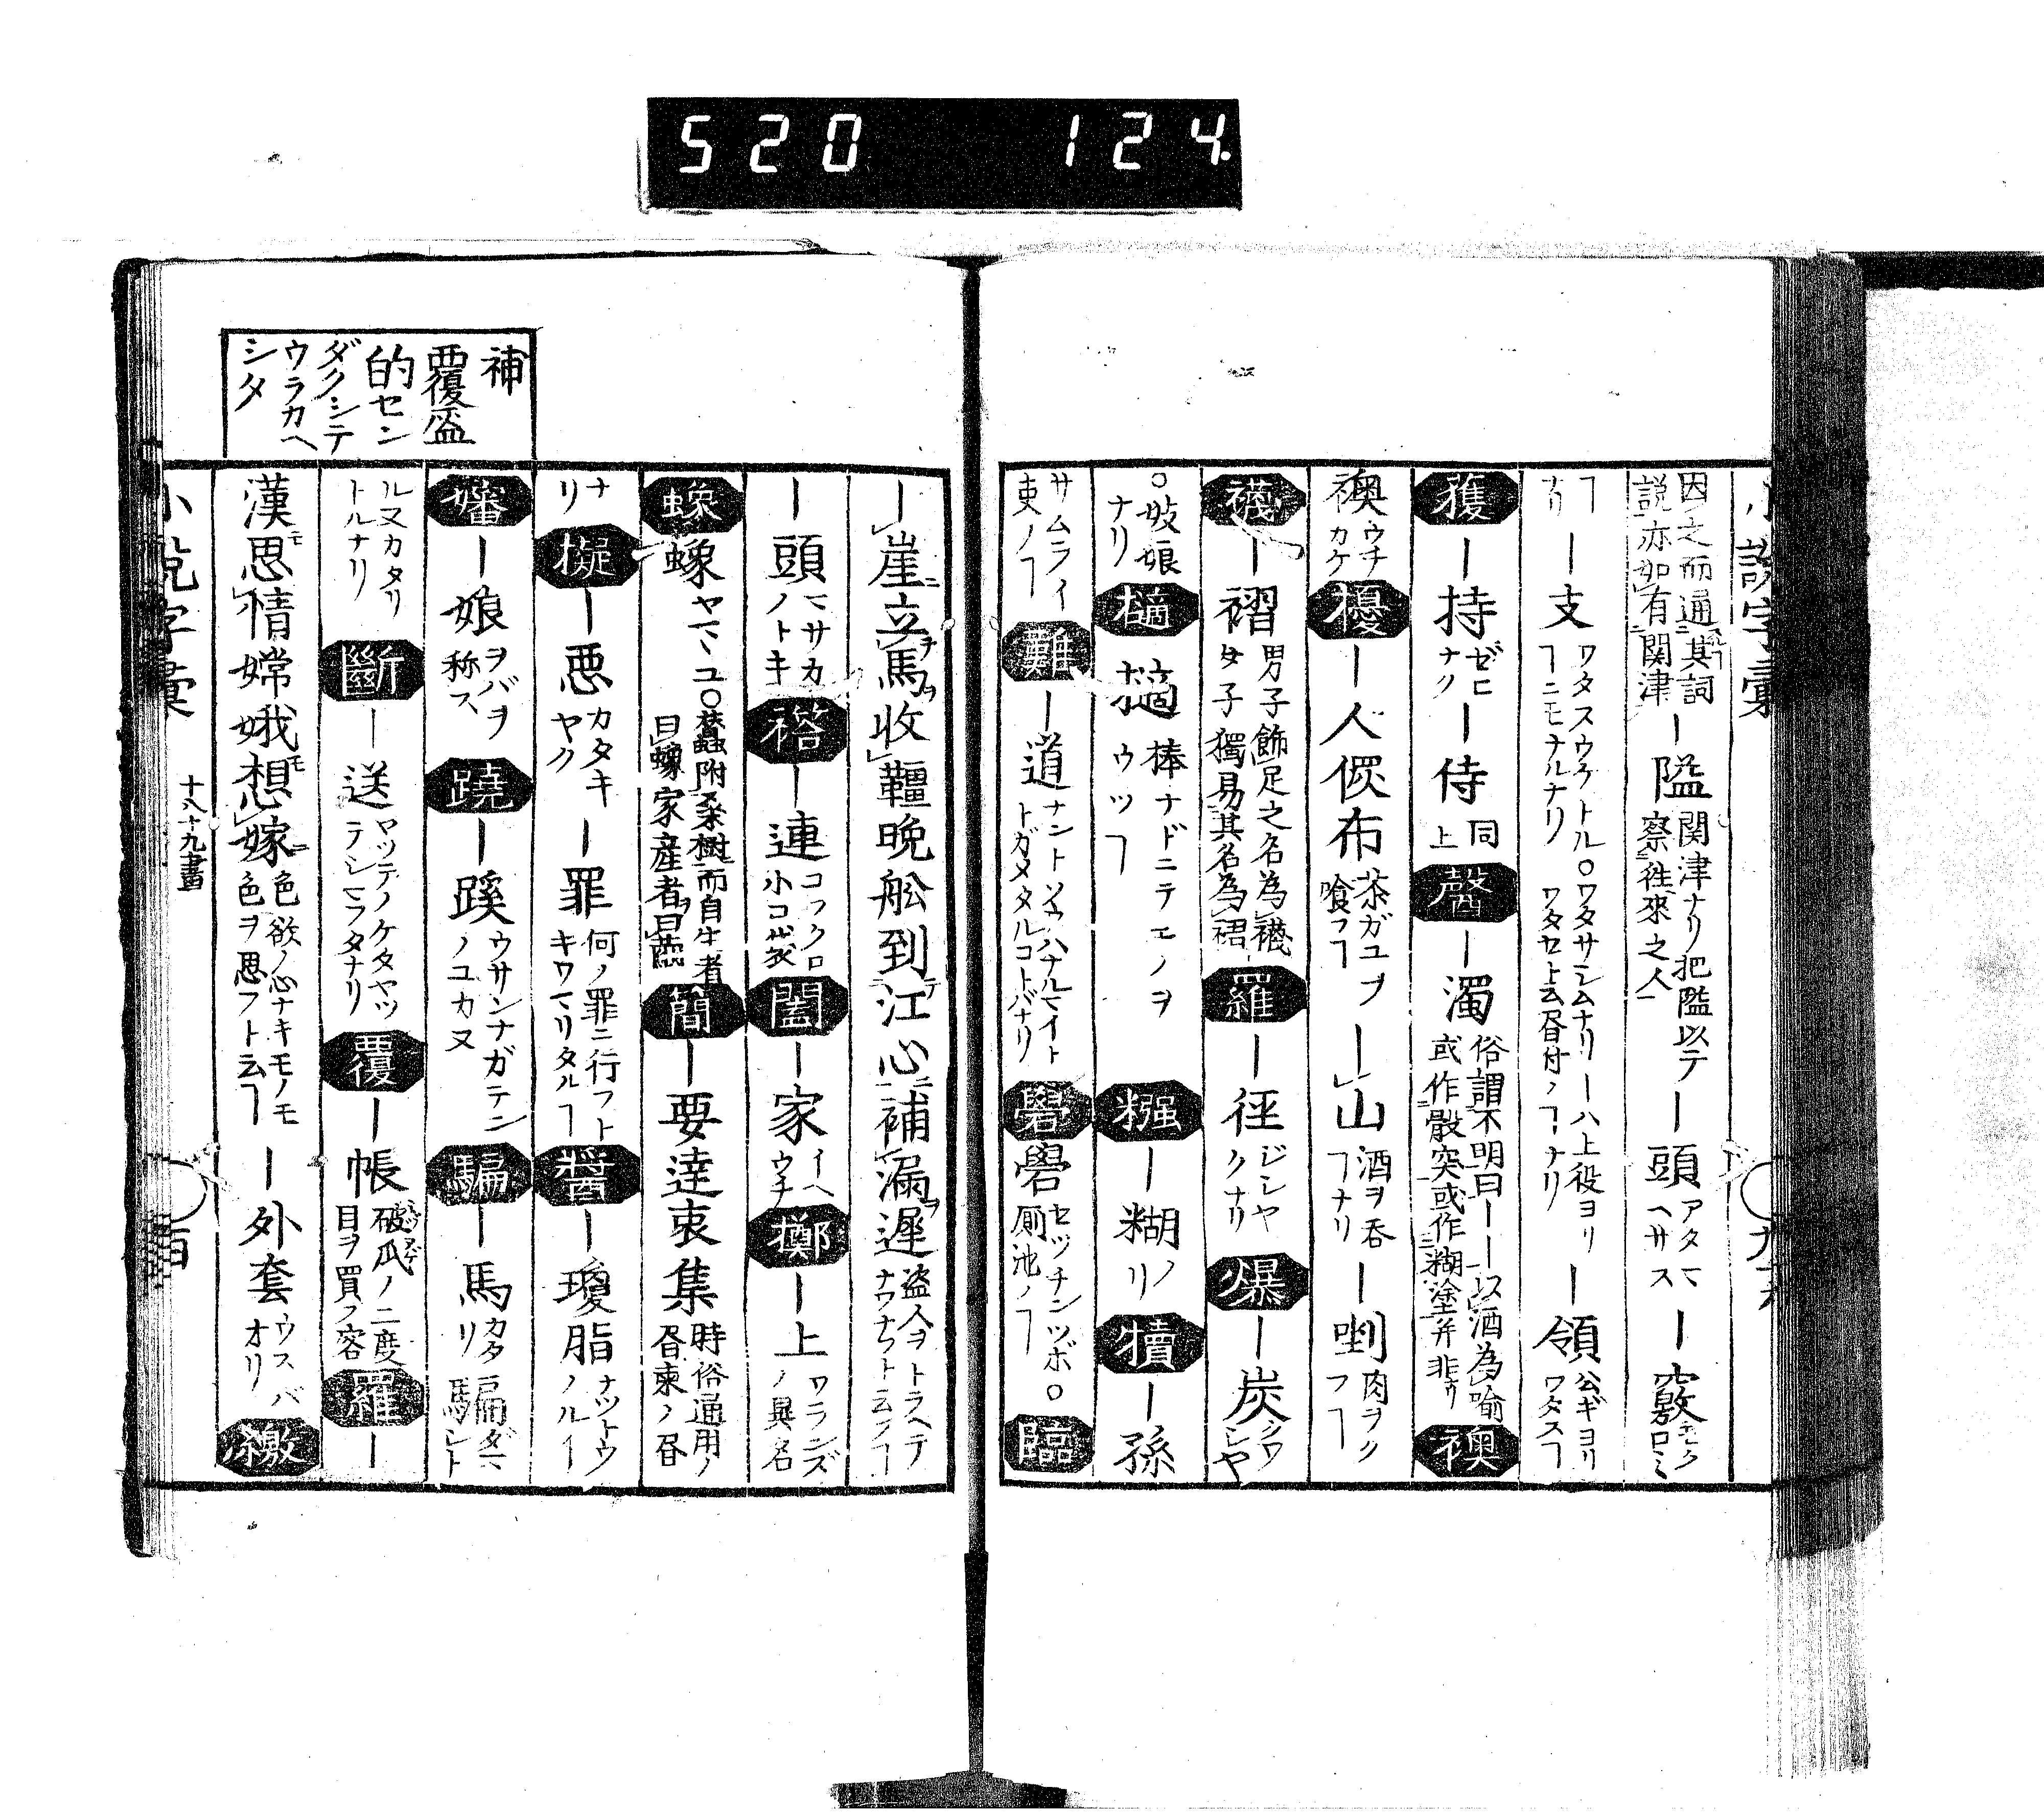 520 124.
小説字彙
因之而通其詞
説亦如有関津
―隘
関津ナリ把隘以テ
察徃來之人ヿ
―頭
アタマ
ヘサス
―竅
ヿ―支
ワタスウケトル〇ワタサシムナリ―ハ上役ヨリ
―領
公ギヨリ
ワタスヿ
獲―持
ゼヒ
ナク
―侍
同
上
罄―濁
俗謂不明曰――以酒為喻
或作骰突或作糊塗并非ナリ
襖
襖
ウチ
カケ
擾―人偎布
茶ガユヲ
喰フヿ
―山
酒ヲ呑
フヿナリ
―
肉ヲク
フヿ
襪―褶
男子飾足之名為襪
女子獨易其名為裙
羅―徑
ジシヤ
クナリ
爆―炭
〇妓娘
ナリ
擿擿
棒ナドニテモノヲ
ウツヿ
糨―糊
ノリ
犢―孫
サムライ
吏ノヿ
難―道
ナントイハナルマイト
トガメタルコトバナリ
礐礐
セツチンツボ〇
厠池ノヿ
臨
―崖立馬收韁晩舩到江心補漏遲
盗人ヲトラヘテ
ナウナラト云ノヿ
―頭
マサカ
ノトキ
―連
コフクロ
小コ袋
闔―家
イヘ
ウチ
擲―上
ワランズ
ノ異名
蟓蟓
ヤママユ〇蠶附桑樹而自生者
曰蟓家産者曰蠶
簡―要達衷集
時俗通用ノ
昏柬ノ昏
ナ
リ
擬―惡
カタキ
ヤク
―罪
何ノ罪ニ行フト
キワマリタルヿ
醬―瓊脂
ナツトウ
ノルイ
嬸―娘
ヲバヲ
称ス
蹺―蹊
ウサンナガテン
ノユカヌ
騙―馬
カタ
リ
騙ダマ
ル又カタリ
トルナリ
斷―送
ヤツテノケタヤツ
テシマフタナリ
覆―帳
破瓜ノ二度
目ヲ買フ客
羅―
漢思情嫦娥想嫁
色欲ノ心ナキモノモ
色ヲ思フト云ヿ
―外套
ウスバ
オリ
小説字彙
十八十九畫
百
補
覆盆
的セン
ダクシテ
ウラカヘ
シタ